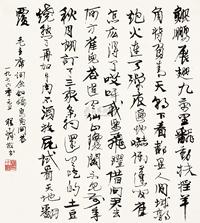 鲲鹏展翅九万里翻动扶摇羊
角背负青天朝下看都是人间城郭
炮火连天弹痕遍地吓倒蓬间雀
怎么得了哎呀我要飞跃借问君去
何方雀儿答道有仙山琼阁不见前年
秋月朗订了三家条约还有吃的土豆
烧熟了再加牛肉不须放屁试看天地翻
覆
毛主席词念奴娇鸟儿问答
一九七六年元旦